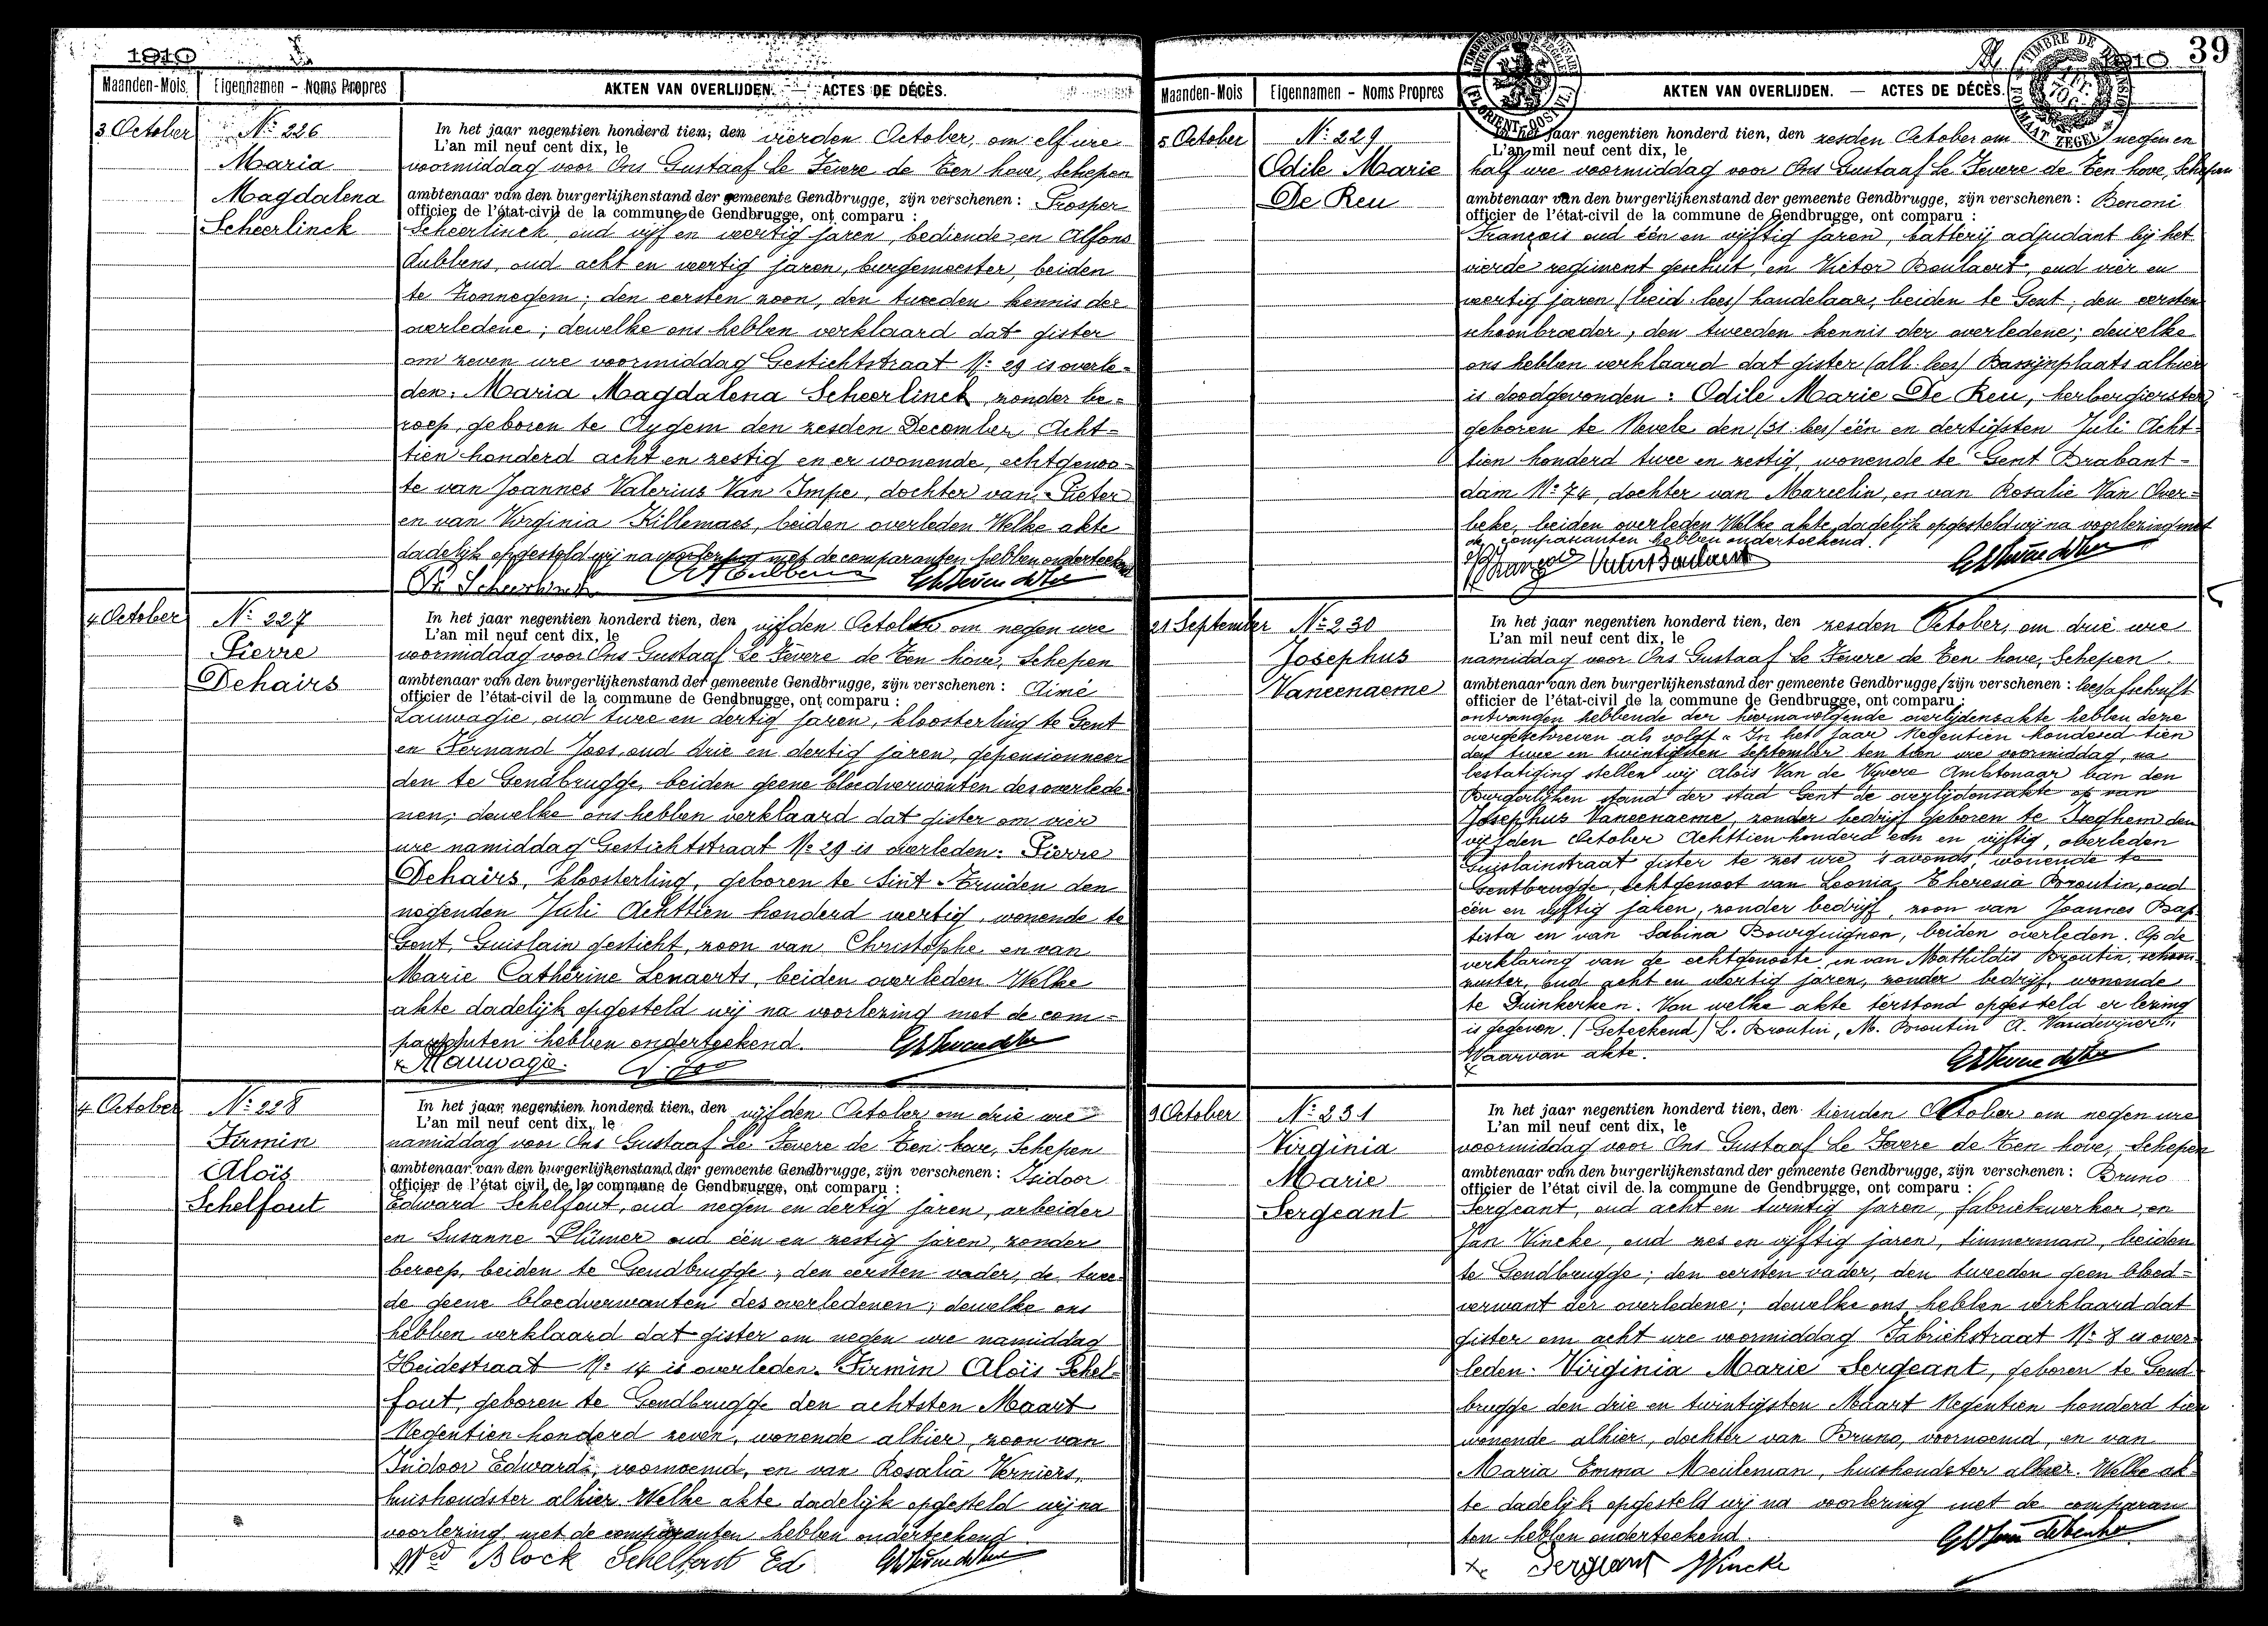 1910
Maanden-Mois Eigennamen - Noms Propres AKTEN VAN OVERLIJDEN. ACTES DE DÉCÈS.
3 October
No: 226
Maria
Magdalena
Scheerlinck
In het jaar negentien honderd tien, den vierden October, om elf ure
L'an mil neuf cent dix, le
voormiddag voor Ons Gustaaf Le Fèvere de Ten hove, Schepen
ambtenaar van den burgerlijkenstand der gemeente Gendbrugge, zijn verschenen : Prosper
officier de l'état-civil de la commune de Gendbrugge, ont comparu :
Scheerlinck, oud vijf en veertig jaren, bediende en Alfons
Dubbens, oud acht en veertig jaren, burgemeester, beiden
te Zonnegem; den eersten zoon, den tweeden kennis der
overledene; dewelke ons hebben verklaard dat gister
om zeven ure voormiddag Gestichtstraat No: 29 is overle-
den: Maria Magdalena Scheerlinck, zonder be-
roep, geboren te Aygem den zesden December Acht-
tien honderd acht en zestig en er wonende, echtgenoo-
te van Joannes Valerius Van Impe, dochter van Pieter
en van Virginia Killemaes, beiden overleden Welke akte
dadelijk opgesteld wij na voorlezing met de comparanten hebben onderteekend
Pr. Scheerlinck
4 October
No: 227
Pierre
Dehairs
In het jaar negentien honderd tien, den vijfden October om negen ure
L'an mil neuf cent dix, le
voormiddag voor Ons Gustaaf Le Fèvere de Ten hove, Schepen
ambtenaar van den burgerlijkenstand der gemeente Gendbrugge, zijn verschenen : Aimé
officier de l'état-civil de la commune de Gendbrugge, ont comparu :
Lauwagie, oud twee en dertig jaren, kloosterling te Gent
en Fernand Joos, oud drie en dertig jaren, gepensionneer
den te Gendbrugge, beiden geene bloedverwanten des overlede-
nen; dewelke ons hebben verklaard dat gister om vier
ure namiddag Gestichtstraat No: 29 is overleden: Pierre
Dehairs, kloosterling, geboren te Sint-Truiden den
negenden Juli Achttien honderd veertig, wonende te
Gent, Guislain gesticht, zoon van Christophe en van
Marie Cathérine Lenaerts, beiden overleden. Welke
akte dadelijk opgesteld wij na voorlezing met de com-
paranten hebben onderteekend.
4 October
No: 228
Firmin
Aloïs
Schelfout
In het jaar negentien honderd tien, den vijfden October om drie ure
L'an mil neuf cent dix, le
namiddag voor Ons Gustaaf Le Fevere de Ten hove, Schepen
ambtenaar van den burgerlijkenstand der gemeente Gendbrugge, zijn verschenen : Isidoor
officier de l'état civil de la commune de Gendbrugge, ont comparu :
Edward Schelfout, oud negen en dertig jaren, arbeider
en Susanne Plümer oud één en zestig jaren, zonder
beroep, beiden te Gendbrugge; den eersten vader, de twee-
de geene bloedverwanten des overledenen; dewelke ons
hebben verklaard dat gister om negen ure namiddag
Heidestraat No: 14 is overleden: Firmin Aloïs Schel-
fout, geboren te Gendbrugge den achtsten Maart
Negentien honderd zeven, wonende alhier, zoon van
Isidoor Edward, voornoemd, en van Rosalia Verniers,
huishoudster alhier. Welke akte dadelijk opgesteld wij na
voorlezing met de comparanten hebben onderteekend
Wed Block Schelfout Ed
1910 39
Maanden-Mois Eigennamen - Noms Propres AKTEN VAN OVERLIJDEN. — ACTES DE DÉCÈS.
5 October
No: 229
Odile Marie
De Reu
In het jaar negentien honderd tien, den zesden October om negen en
L'an mil neuf cent dix, le
half ure voormiddag voor Ons Gustaaf Le Fevere de Ten hove, Schepen
ambtenaar van den burgerlijkenstand der gemeente Gendbrugge, zijn verschenen : Benoni
officier de l'état-civil de la commune de Gendbrugge, ont comparu :
François oud één en vijftig jaren, batterij adjudant bij het
vierde regiment geschut, en Victor Boulaert, oud vier en
veertig jaren (beid: lees) handelaar, beiden te Gent; den eersten
schoonbroeder, den tweeden kennis der overledene; dewelke
ons hebben verklaard dat gister (all: lees) Bassijnplaats alhier
is doodgevonden: Odile Marie De Reu, herbergierster,
geboren te Nevele den (31: lees) één en dertigsten Juli Acht-
tien honderd twee en zestig, wonende te Gent Brabant-
dam No: 74, dochter van Marcelin, en van Rosalie Van Over-
beke, beiden overleden. Welke akte dadelijk opgesteld wij na voorlezing met
de comparanten hebben onderteekend.
Bn François Victor Boulaert
21 September
No: 230
Josephus
Vaneenaeme
In het jaar negentien honderd tien, den zesden October, om drie ure
L'an mil neuf cent dix, le
namiddag voor Ons Gustaaf Le Fevere de Ten hove, Schepen
ambtenaar van den burgerlijkenstand der gemeente Gendbrugge, zijn verschenen : lees) afschrift
officier de l'état-civil de la commune de Gendbrugge, ont comparu :
ontvangen hebbende der hiernavolgende overlijdensakte hebben deze
overgeschreven als volgt: "In het jaar Negentien honderd tien
den twee en twintigsten September, ten tien ure voormiddag, na
bestatiging stellen wij Aloïs Van de Vyvere Ambtenaar van den
Burgerlijken stand der stad Gent de overlijdensakte op van
Josephus Vaneenaeme, zonder bedrijf, geboren te Iseghem den
vijfden October Achttien honderd een en vijftig, overleden
Guislainstraat gister te zes ure 's avonds, wonende te
Gentbrugge, echtgenoot van Leonia Theresia Broutin, oud
één en vijftig jaren, zonder bedrijf, zoon van Joannes Bap-
tista en van Sabina Bourguignon, beiden overleden. Op de
verklaring van de echtgenoote, en van Mathildis Broutin, schoon-
zuster, oud acht en veertig jaren, zonder bedrijf, wonende
te Duinkerken. Van welke akte terstond opgesteld er lezing
is gegeven. (Geteekend) L. Broutin, M. Broutin A. Vandevyvere".
Waarvan akte.
9 October
No: 231
Virginia
Marie
Sergeant
In het jaar negentien honderd tien, den tienden October om negen ure
L'an mil neuf cent dix, le
voormiddag voor Ons Gustaaf Le Fevere de Ten hove, Schepen
ambtenaar van den burgerlijkenstand der gemeente Gendbrugge, zijn verschenen : Bruno
officier de l'état civil de la commune de Gendbrugge, ont comparu :
Sergeant, oud acht en twintig jaren, fabriekwerker, en
Jan Vincke, oud zes en vijftig jaren, timmerman, beiden
te Gendbrugge; den eersten vader, den tweeden geen bloed-
verwant der overledene; dewelke ons hebben verklaard dat
gister om acht ure voormiddag Fabriekstraat No: 8 is over-
leden: Virginia Marie Sergeant, geboren te Gend
brugge den drie en twintigsten Maart Negentien honderd tien
wonende alhier, dochter van Bruno, voornoemd, en van
Maria Emma Meuleman, huishoudster alhier. Welke ak-
te dadelijk opgesteld wij na voorlezing met de comparan
ten hebben onderteekend.
Sergeant JVincke